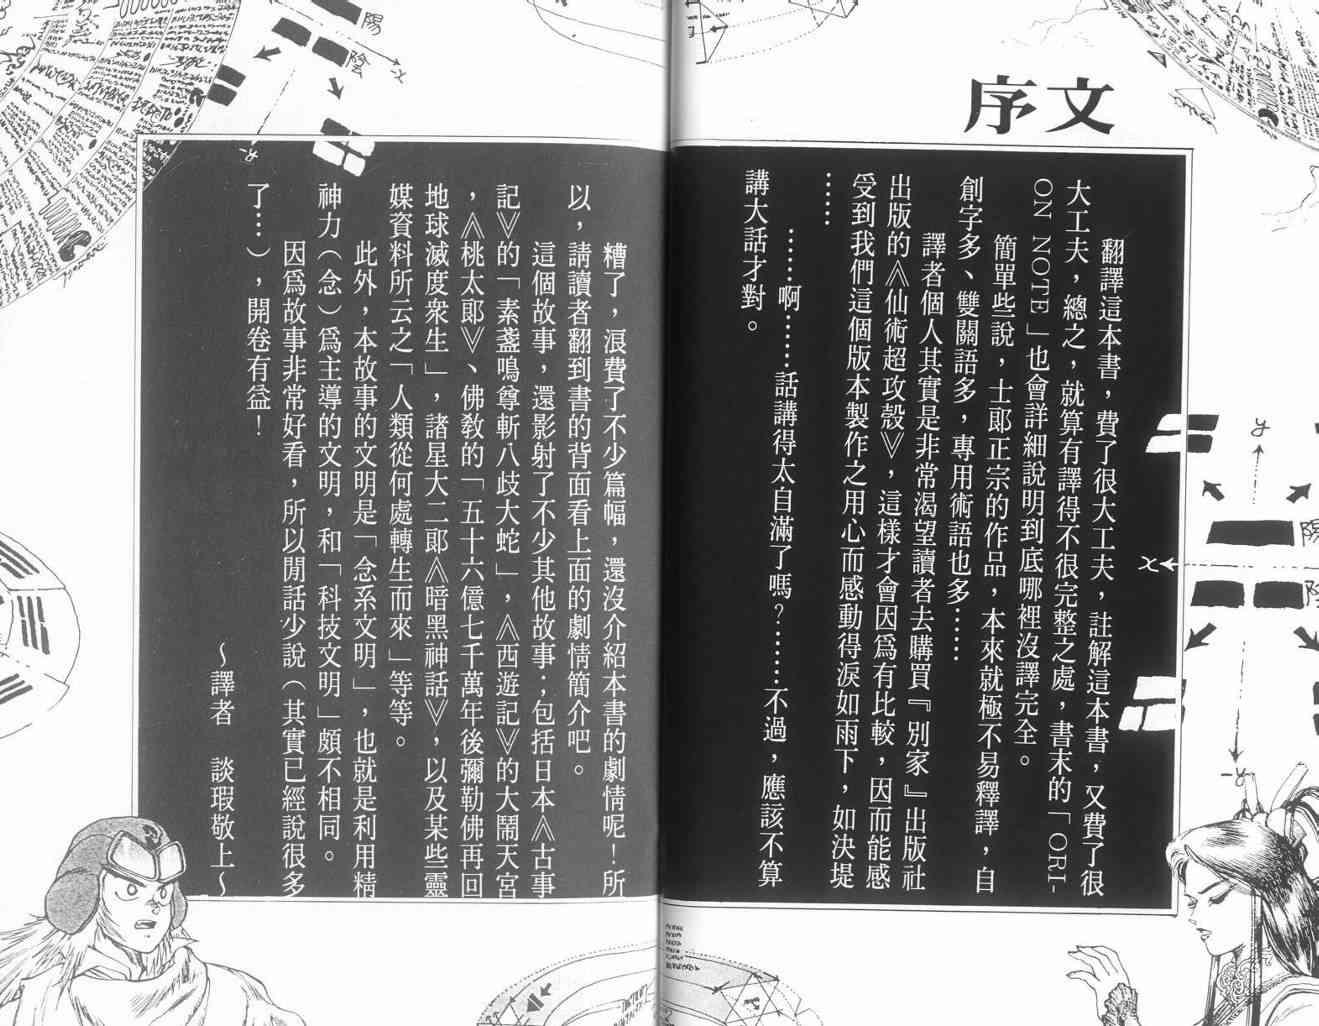 序文
翻譯這本書，費了很大工夫，註解這本書，又費了很
大工夫，總之，就算有譯得不很完整之處，書末的「ORI-
ON NOTE」也會詳細說明到底哪裡沒譯完全。
簡單些說，士郎正宗的作品，本來就極不易釋譯，自
創字多、雙關語多，專用術語也多……
譯者個人其實是非常渴望讀者去購買『別家』出版社
出版的《仙術超攻殼》，這樣才會因為有比較，因而能感
受到我們這個版本製作之用心而感動得淚如雨下，如決堤
……
……啊……話講得太自滿了嗎？……不過，應該不算
講大話才對。
糟了，浪費了不少篇幅，還沒介紹本書的劇情呢！所
以，請讀者翻到書的背面看上面的劇情簡介吧。
這個故事，還影射了不少其他故事；包括日本《古事
記》的「素盞鳴尊斬八歧大蛇」，《西遊記》的大鬧天宮
，《桃太郎》、佛教的「五十六億七千萬年後彌勒佛再回
地球滅度衆生」，諸星大二郎《暗黑神話》，以及某些靈
媒資料所云之「人類從何處轉生而來」等等。
此外，本故事的文明是「念系文明」，也就是利用精
神力（念）為主導的文明，和「科技文明」頗不相同。
因為故事非常好看，所以閒話少說（其實已經說很多
了…），開卷有益！
～譯者　談瑕敬上～
陽
陰
x
-y
y
陽
陰
x
-y